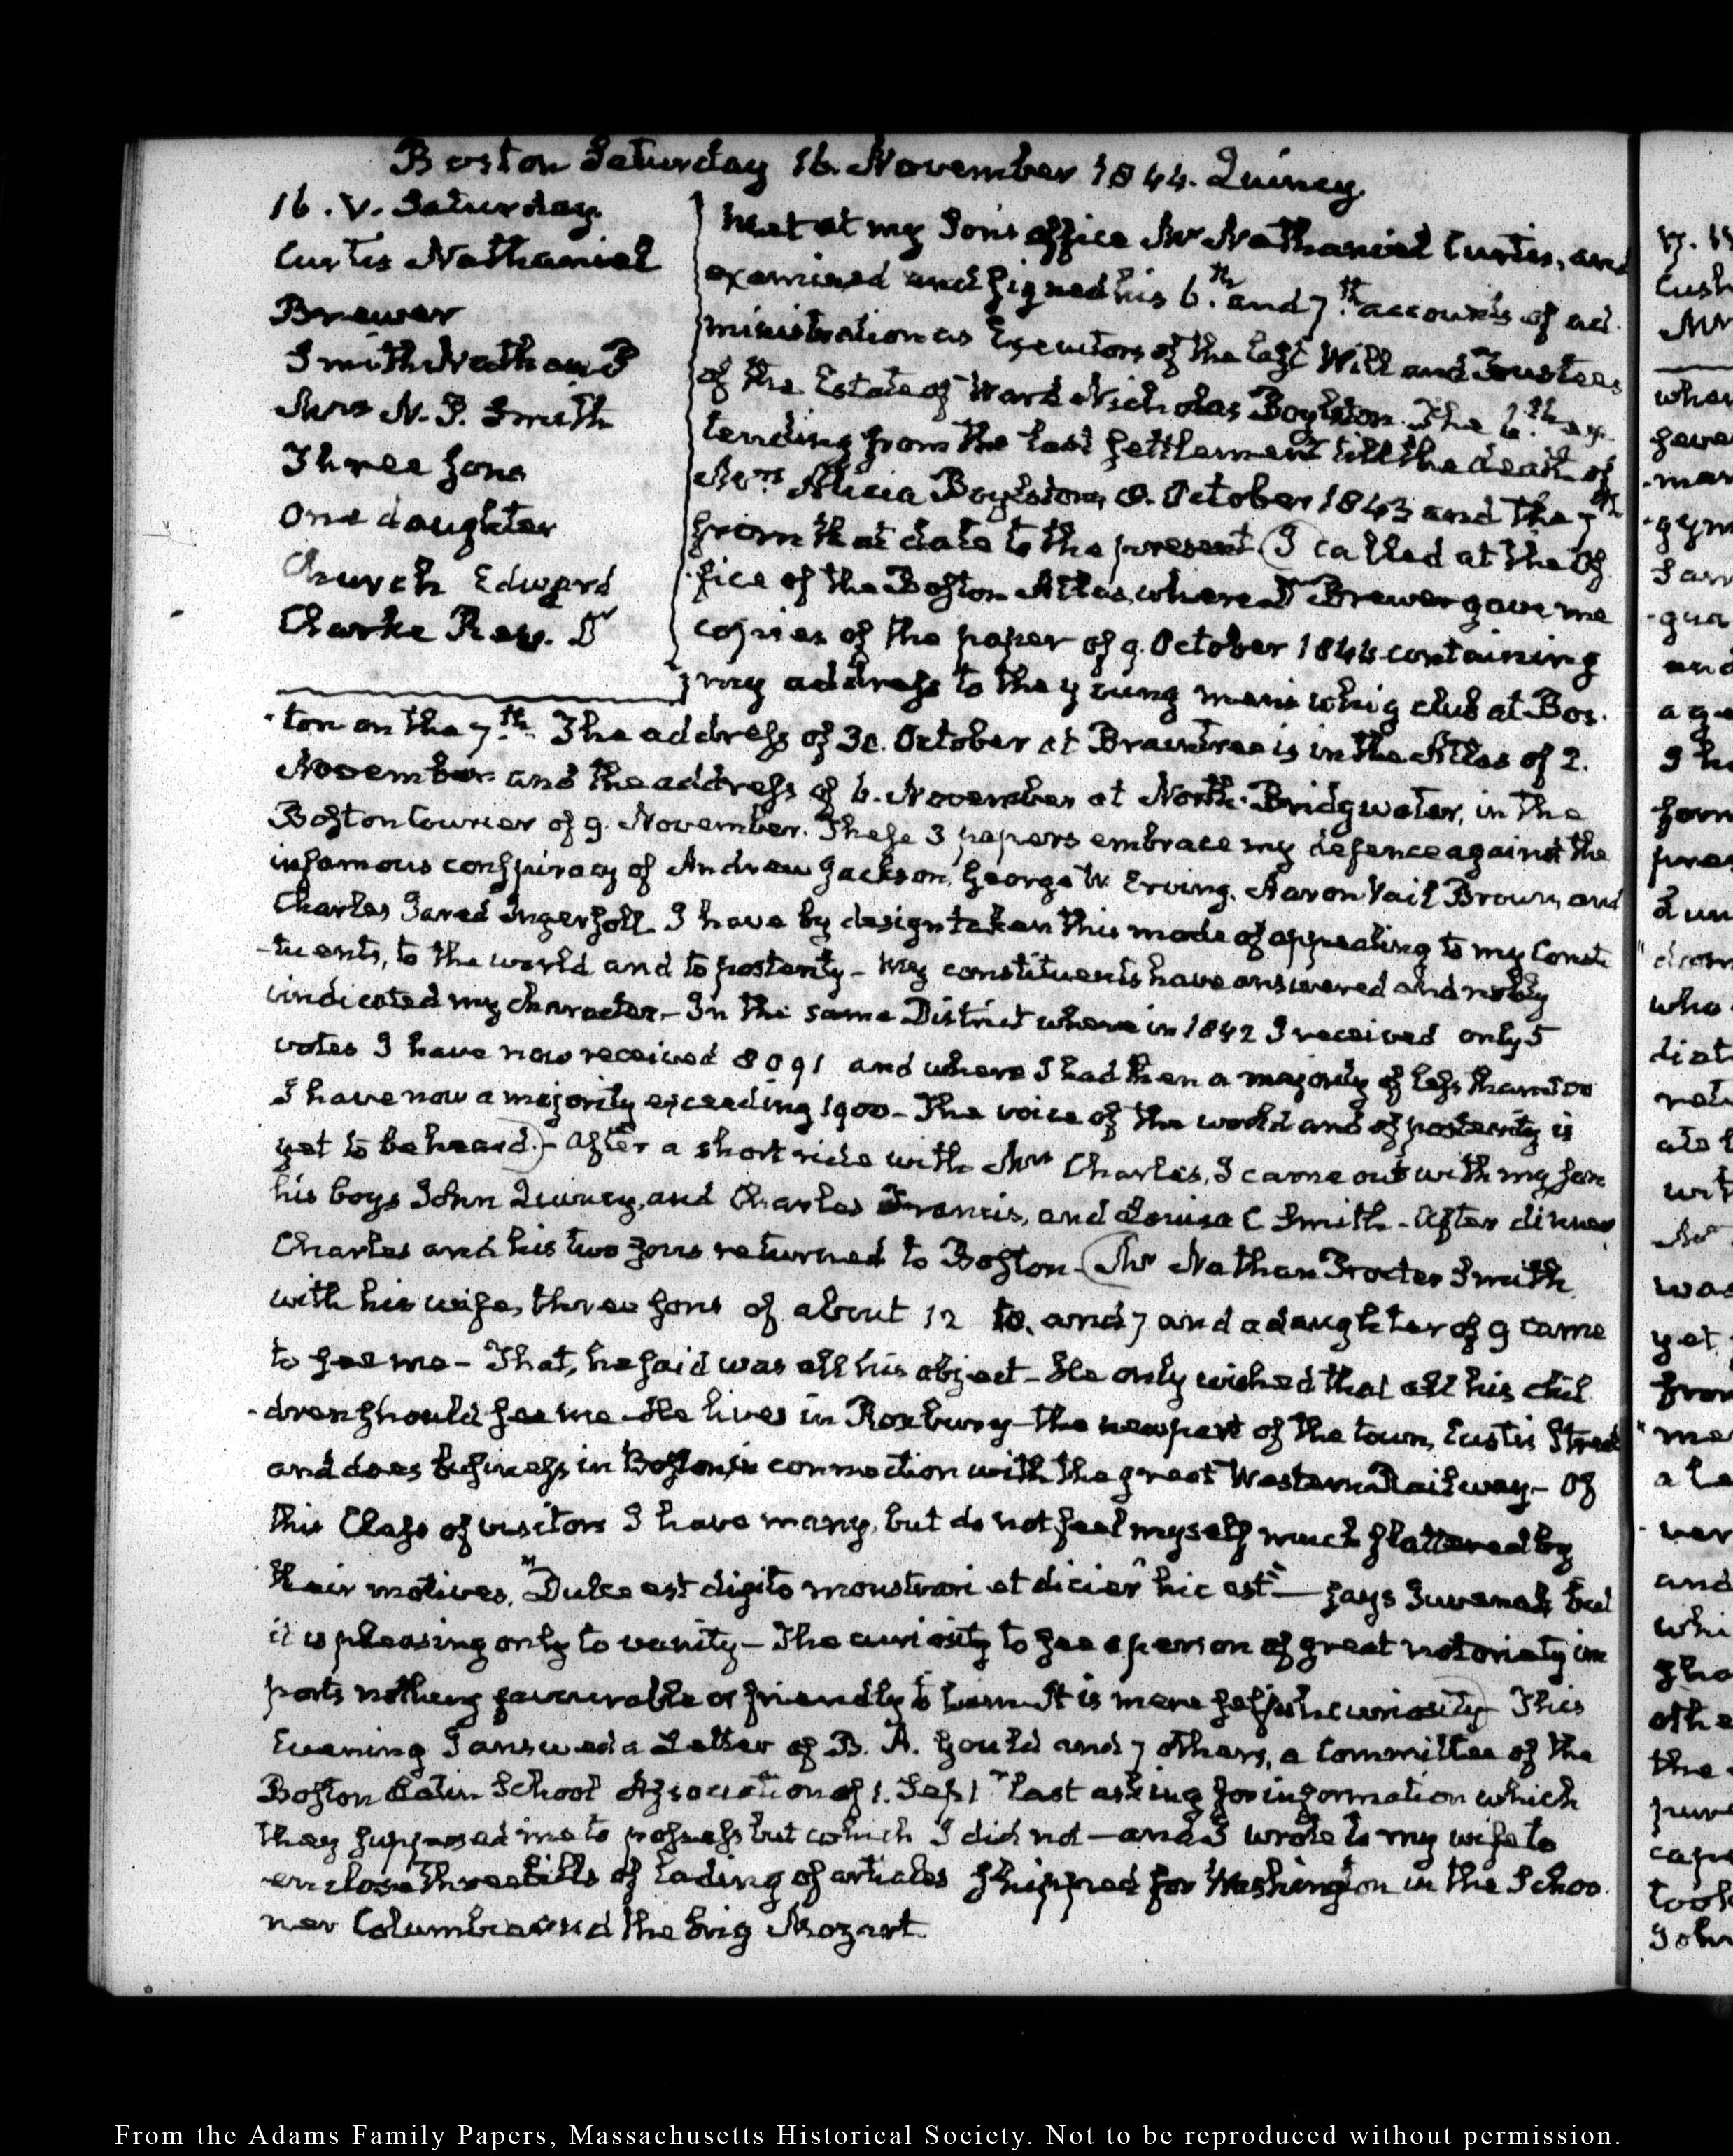 Boston Saturday 16. November 1844. Quincy.
16. V. Saturday.
Curtis Nathaniel
Brewer
Smith Nathan P
Mrs N. P. Smith
Three sons
One daughter
Church Edward
Clarke Rev. Dr
Met at my Son's office Mr Nathaniel Curtis, and
examined and signed his 6.th and 7.th accounts of ad-
ministration as Executors of the last Will and Trustees
of the Estate of Ward Nicholas Boylston. The 6.th ex-
tending from the last settlement till the death of
Mrs Alicia Boylston, 8. October 1843 and the 7th
from that date to the present. I called at the Of-
fice of the Boston Atlas, where Dr Brewer gave me
copies of the paper of 9. October 1844 containing
my address to the young men's whig club at Bos-
ton on the 7.th The address of 30. October at Braintree is in the Atlas of 2.
November and the address of 6. November at North-Bridgwater, in the
Boston Courier of 9. November. These 3 papers embrace my defence against the
infamous conspiracy of Andrew Jackson, George W. Erving, Aaron Vail Brown, and
Charles Jared Ingersoll. I have by design taken this mode of appealing to my Consti-
tuents, to the world and to posterity – My constituents have answered and nobly
vindicated my character. – In the same District where in 1842 I received only 5
votes I have now received 8091 and where I had then a majority of less than
I have now a majority exceeding 1900 – The voice of the world and of posterity is
yet to be heard. – After a short ride with Mrs Charles, I came out with my son
his boys John Quincy, and Charles Francis, and Louisa C Smith – After dinner
Charles and his two sons returned to Boston – Mr Nathan Procter Smith
with his wife, three sons of about 12 10, and 7 and a daughter of 9 came
to see me – That, he said was all his object – He only wished that all his chil-
dren should see me – He lives in Roxbury – the near part of the town, Eustis Street
and does business in Boston in connection with the great Western Railway – Of
this Class of visitors I have many, but do not feel myself much flattered by
their motives. "Dulce est digito monstrari et dicier hic est" – says Juvenal; but
it is pleasing only to vanity – The curiosity to see a person of great notoriety im
ports nothing favourable or friendly to him – It is mere selfish curiosity – This
Evening I answered a Letter of B. A. Gould and 7 others, a Committee of the
Boston Latin School Association of 1. Sept.r last asking for information which
they supposed me to possess but which I did not – and I wrote to my wife to
enclose three bills of lading of articles shipped for Washington in the Schoo-
ner Columbia and the brig Mozart.
y. W
Cush
Mr
when
seve
mar
gym
gua
and
a ge
I ha
form
pres
dun
who
dist
ate
wit
Mr
was
yet
from
me
a le
ver
and
whi
sho
othe
the
cape
took
John
From the Adams Family Papers, Massachusetts Historical Society. Not to be reproduced without permission.